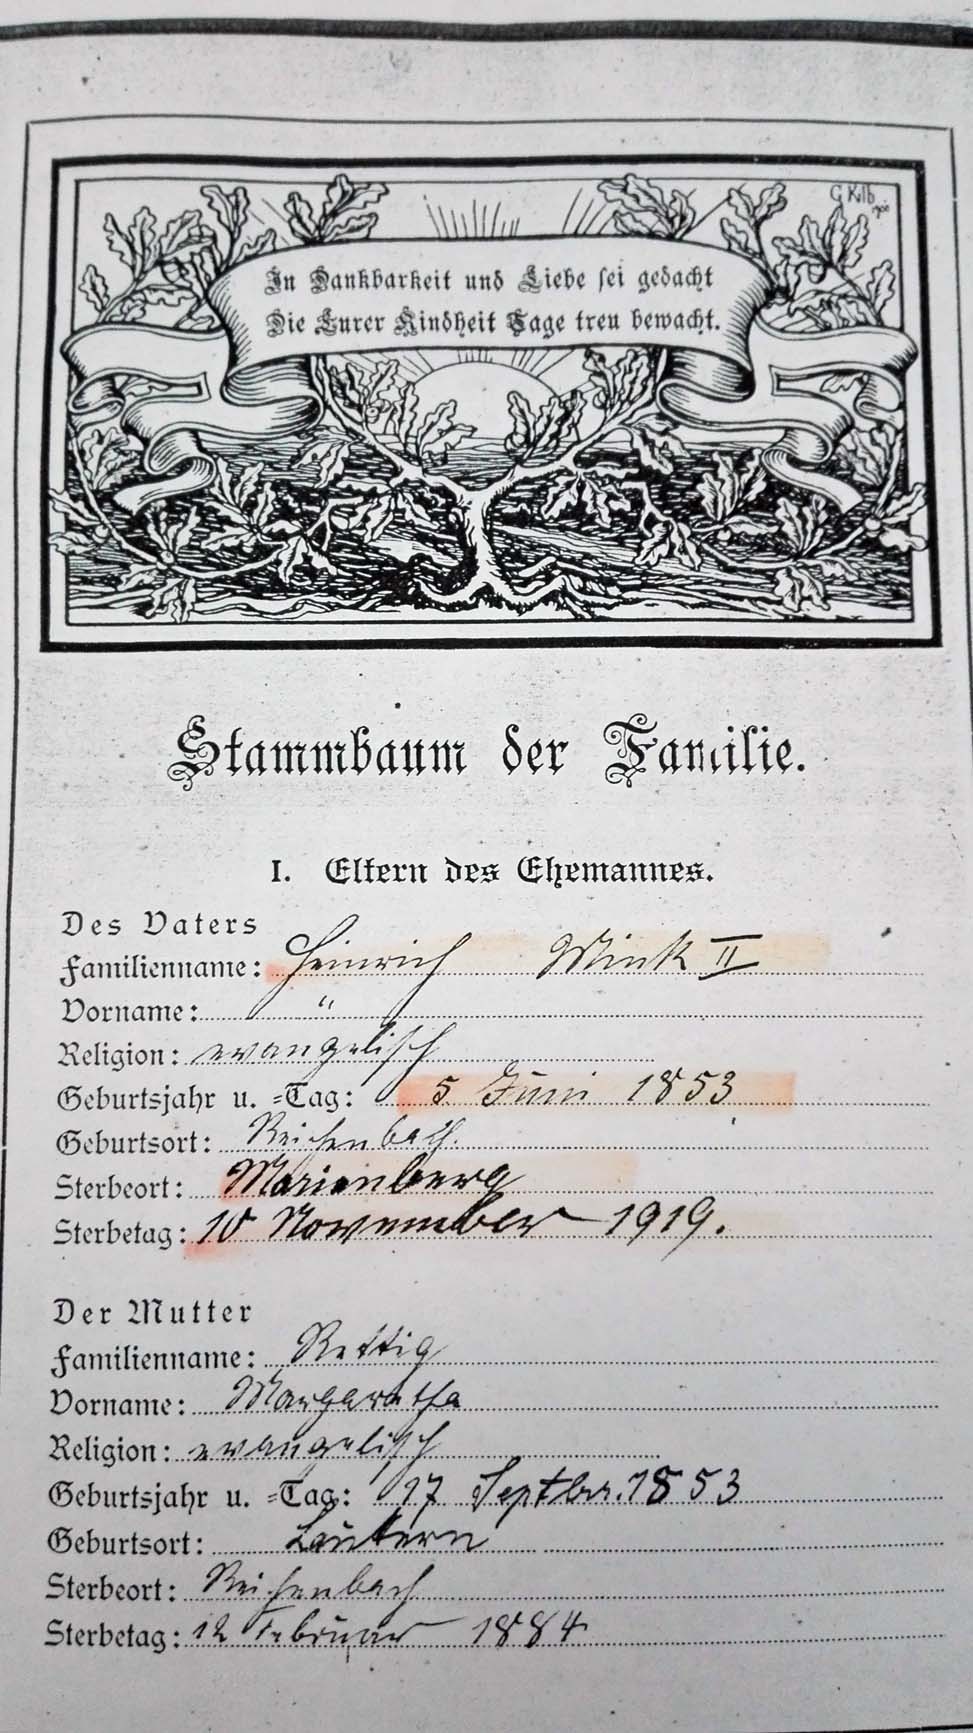 G Kilb
In Dankbarkeit und Liebe sei gedacht
Die Eurer Kindheit Tage treu bewacht.
Stammbaum der Familie.
I. Eltern des Ehemannes.
Des Vaters
Familienname: Heinrich Wink II
Vorname: "
Religion: evangelisch
Geburtsjahr u. =Tag: 5 Juni 1853
Geburtsort: Reichenbach.
Sterbeort: Marienberg
Sterbetag: 10 November 1919.
Der Mutter
Familienname: Rettig
Vorname: Margaretha
Religion: evangelisch
Geburtsjahr u. =Tag: 17 Septbr. 1853
Geburtsort: Lautern
Sterbeort: Reichenbach
Sterbetag: 12 Februar 1884